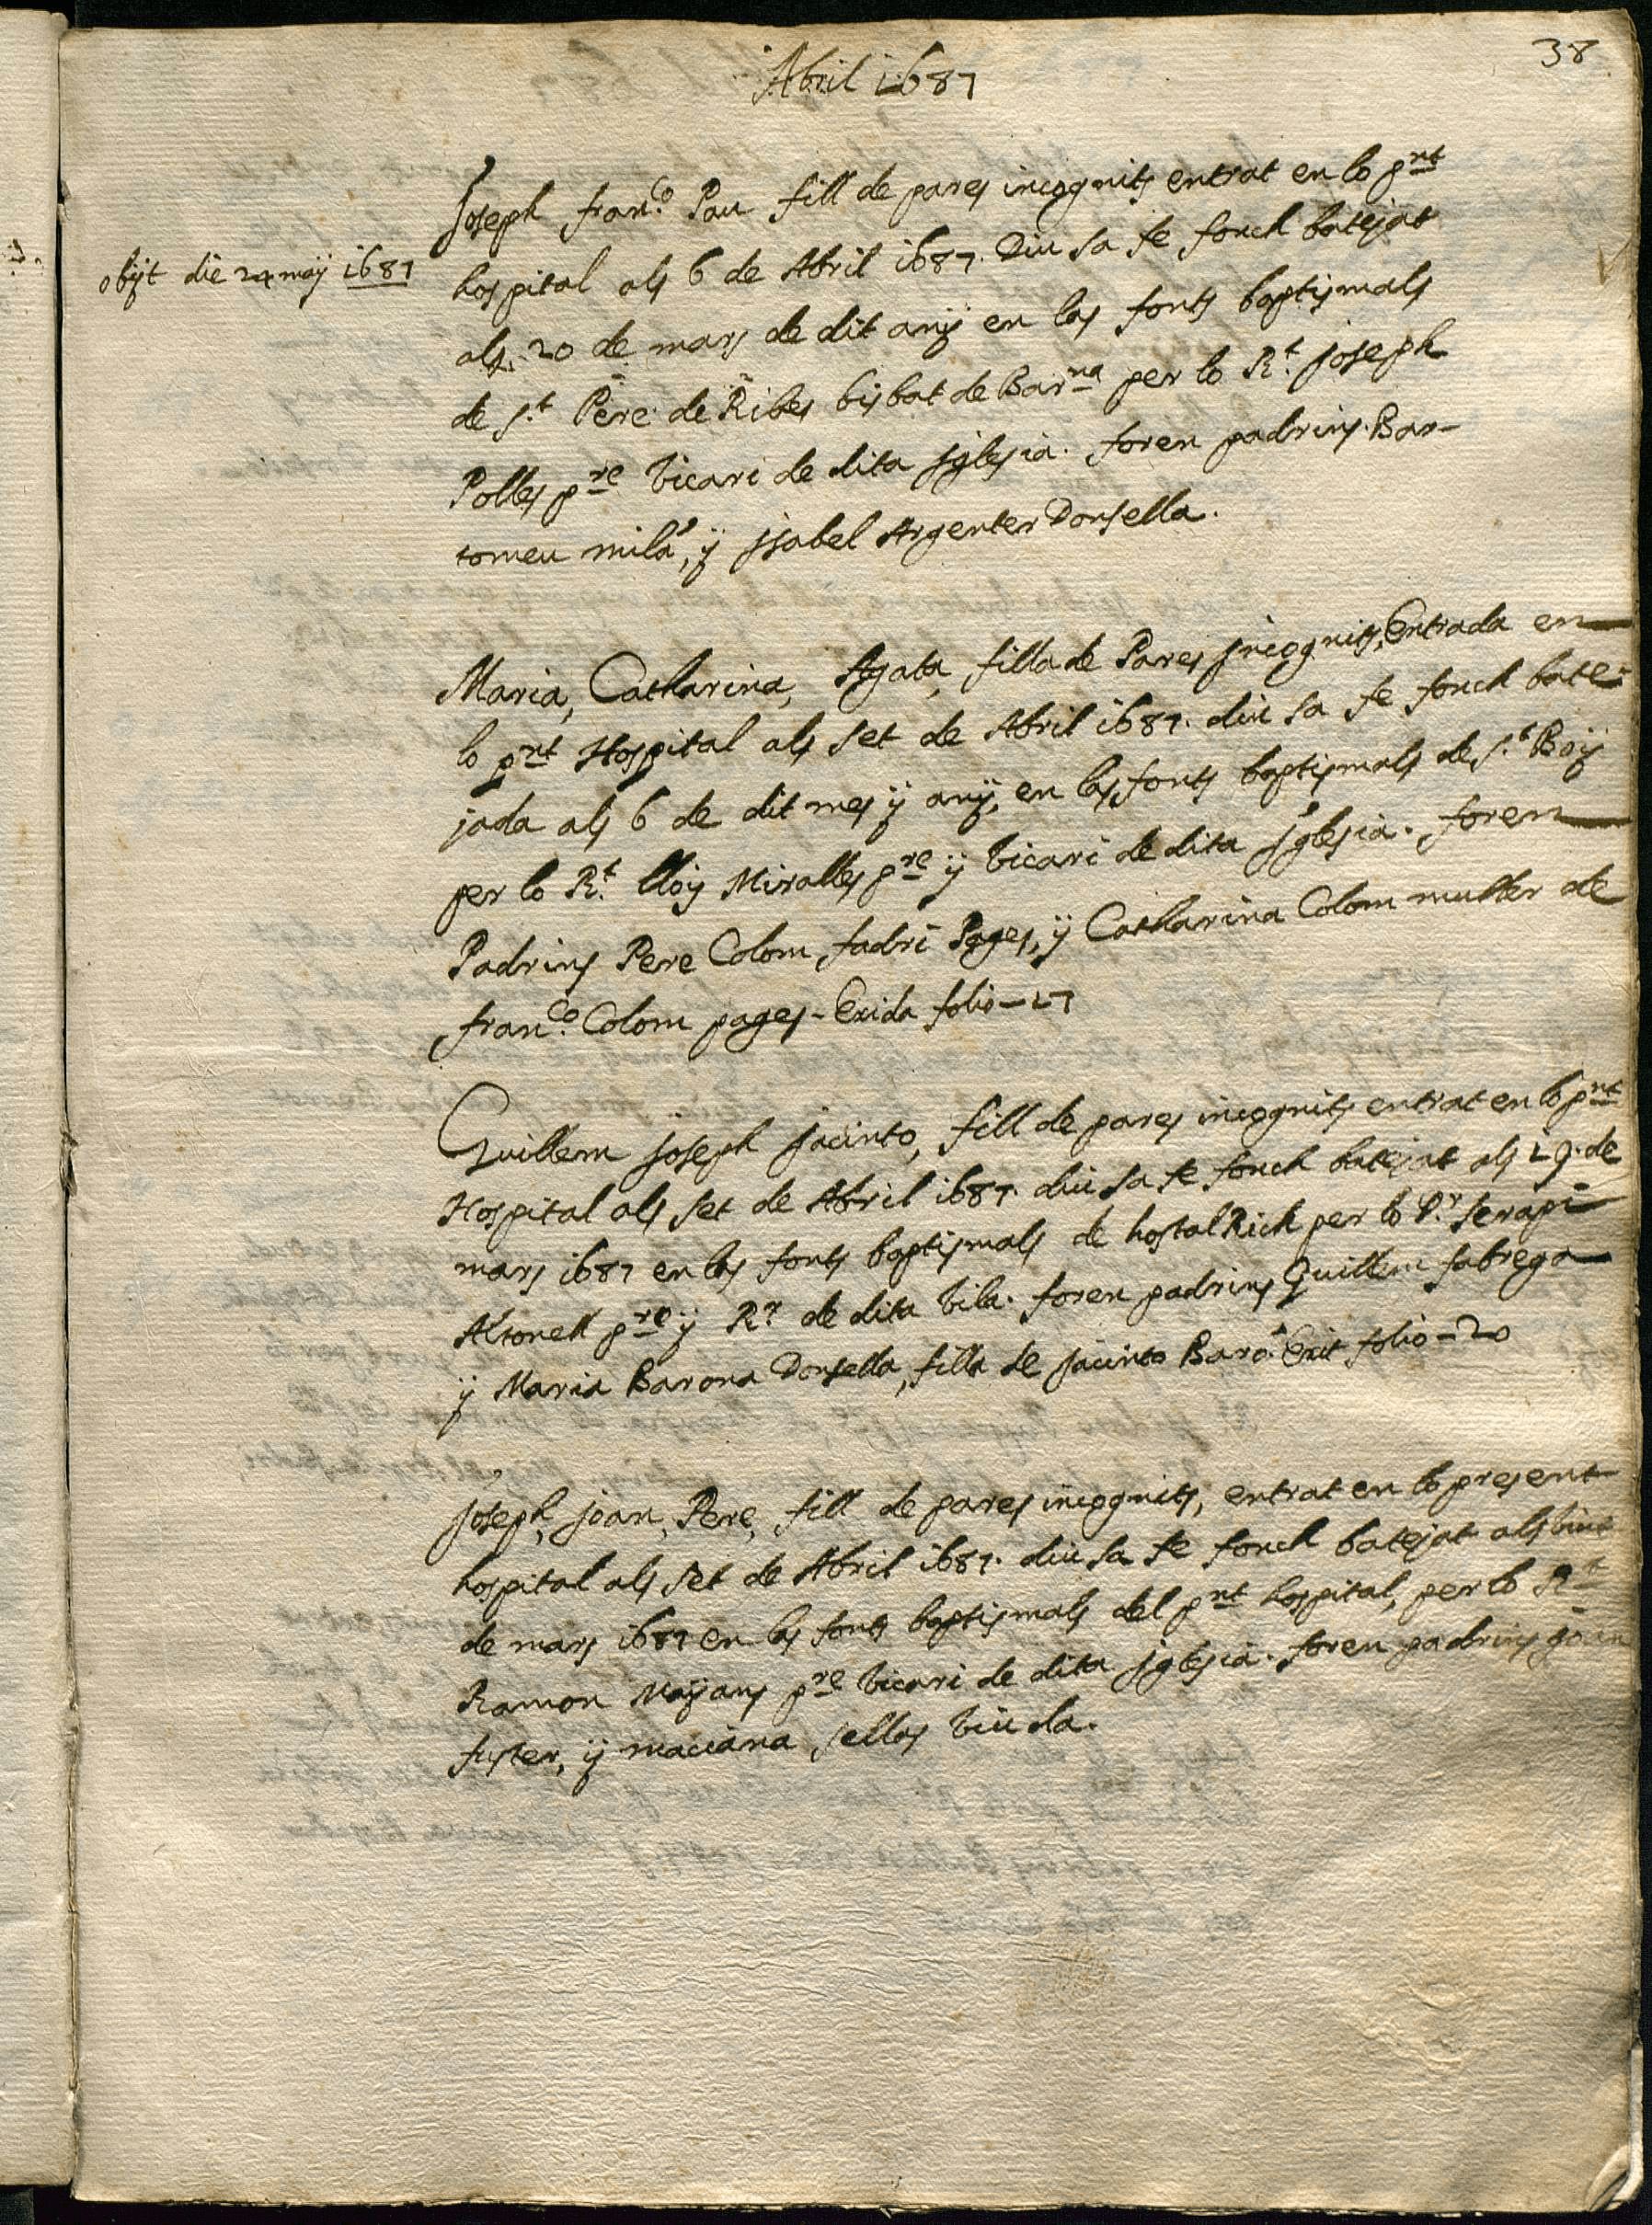 38
Abril 1687
Joseph fran.co Pau fill de pares incognits entrat en lo pnt
obijt die 24 maÿ 1687
hospital als 6 de Abril 1687. Diu sa fe fonch batejat
als 20 de mars de dit anÿ en las fonts baptismals
de S.t Pere de Ribes bisbat de Barna per lo R.t Joseph
Polles pre Vicari de dita Iglesia. foren padrins Bar-
tomeu milà, ÿ Isabel Argenter Donsella.
Maria, Catharina, Agata, filla de Pares Incognits, Entrada en
lo pnt Hospital als set de Abril 1687. diu sa fe fonch bate-
jada als 6 de dit mes ÿ anÿ, en las fonts baptismals de S.t Boÿ
per lo R.t lloÿ Miralles pre ÿ Vicari de dita Iglesia. foren
Padrins Pere Colom, fadri Pages, ÿ Catharina Colom muller de
fran.co Colom pages - Exida folio - 27
Guillem Joseph Jacinto, fill de pares incognits entrat en lo pnt
Hospital als set de Abril 1687. diu sa fe fonch batejat als 29. de
mars 1687 en las fonts baptismals de hostalRich per lo D.r Serapi
pre ÿ R.r de dita Vila. foren padrins Guillem fabrega
ÿ Maria Barona Donsella, filla de Jacinto Baró. Exit folio - 20
Joseph, Joan, Pere, fill de pares incognits, entrat en lo present
hospital als set de Abril 1687. diu sa fe fonch batejat als vint
de mars 1687 en las fonts baptismals del pnt hospital, per lo R.t
Ramon Maÿans pre Vicari de dita Iglesia. foren padrins Joan
fuster, ÿ maciana sellas Viuda.